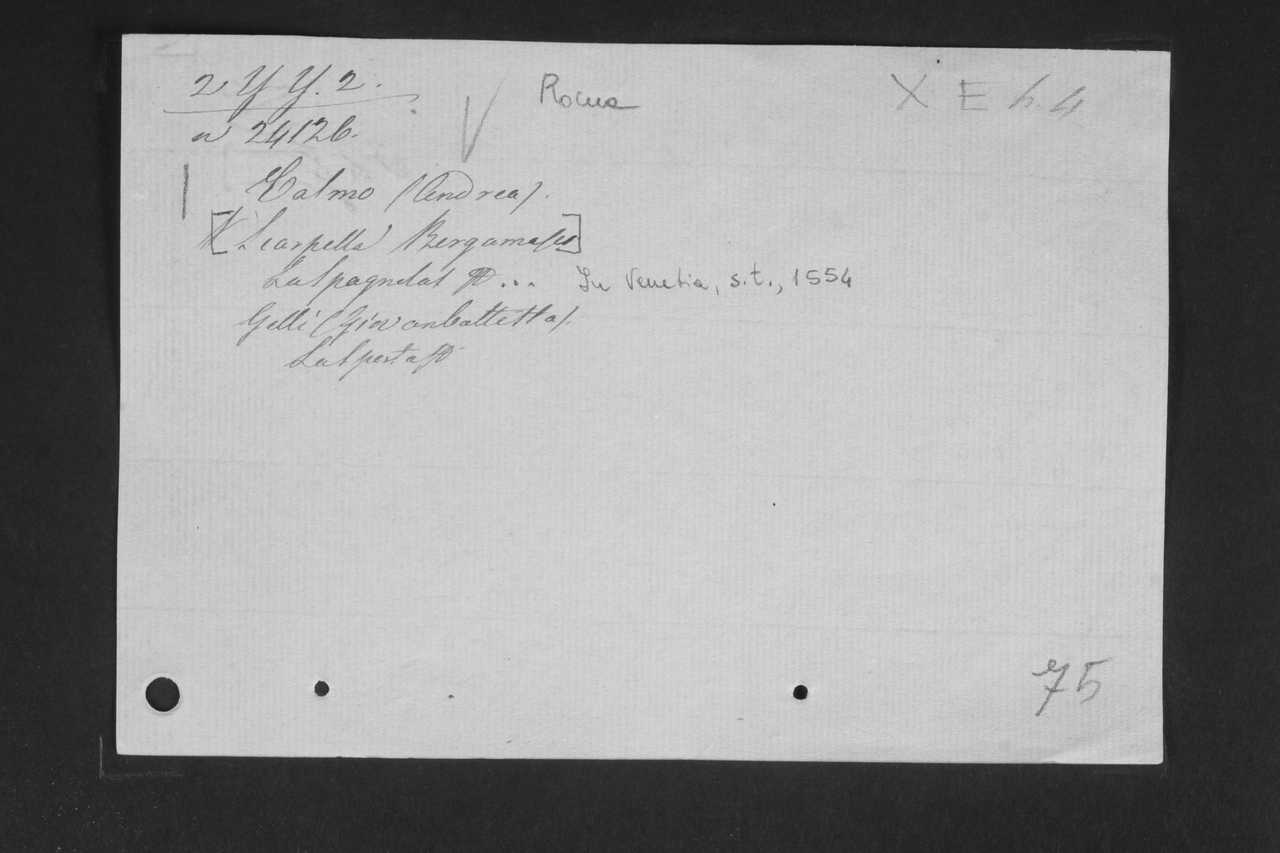 2 Y Y. 2.
Roma
X E h. 4
n 24126.
Calmo (Andrea).
[Scarpella Bergamasco]
La Spagnolas ... In Venetia, s.t., 1554
Gelli (Giovanbattista).
La Sporta
75